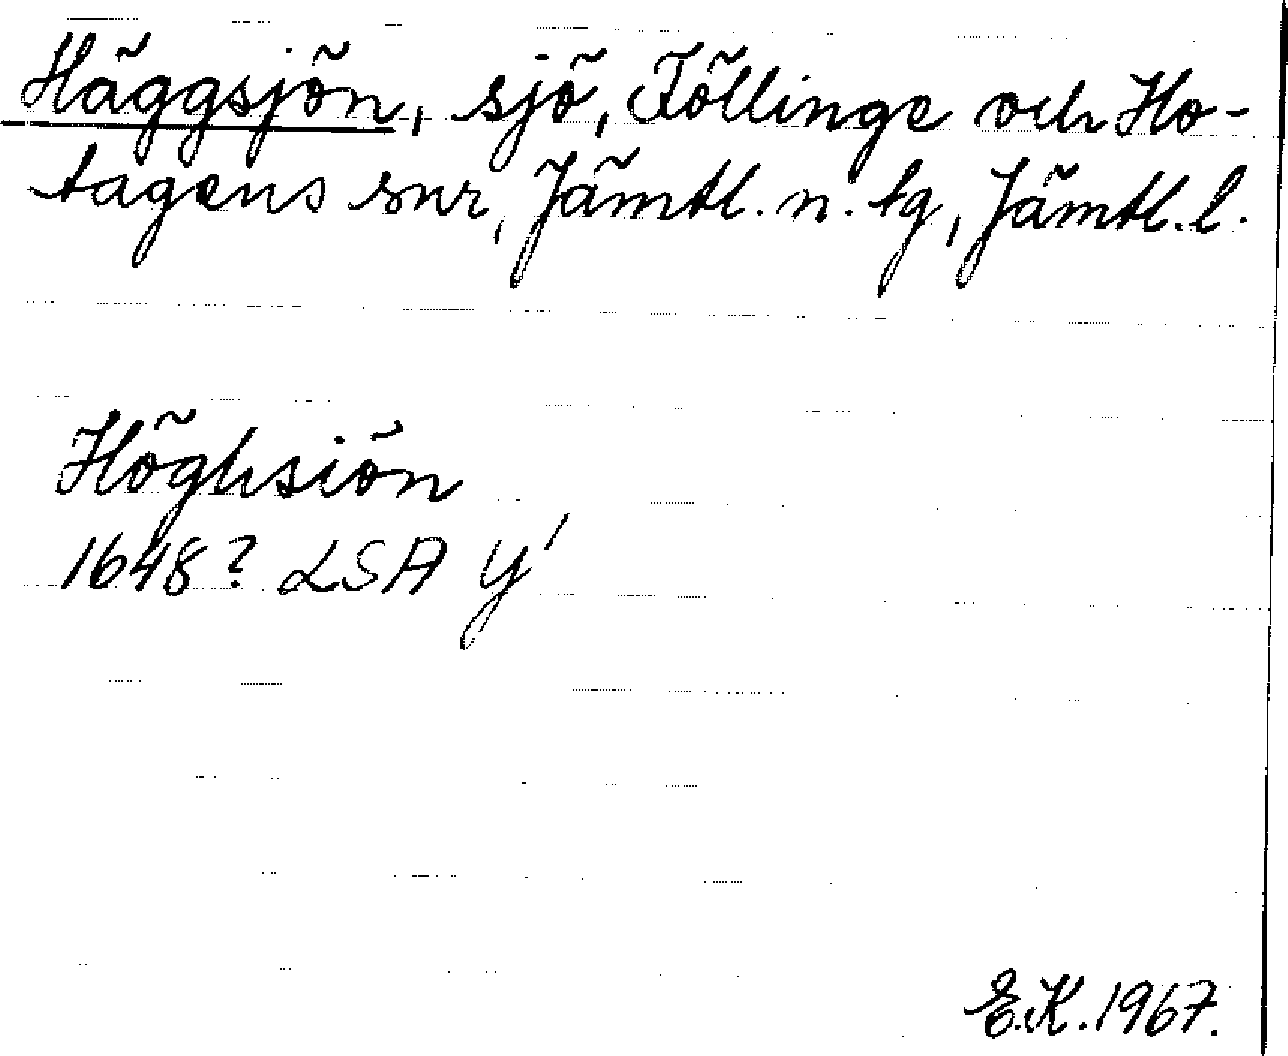 Häggsjön, sjö, Föllinge och Ho-
tagens snr, Jämtl. n. tg, Jämtl. l.
Höghsiön
1648? LSA y'
E.K. 1967.